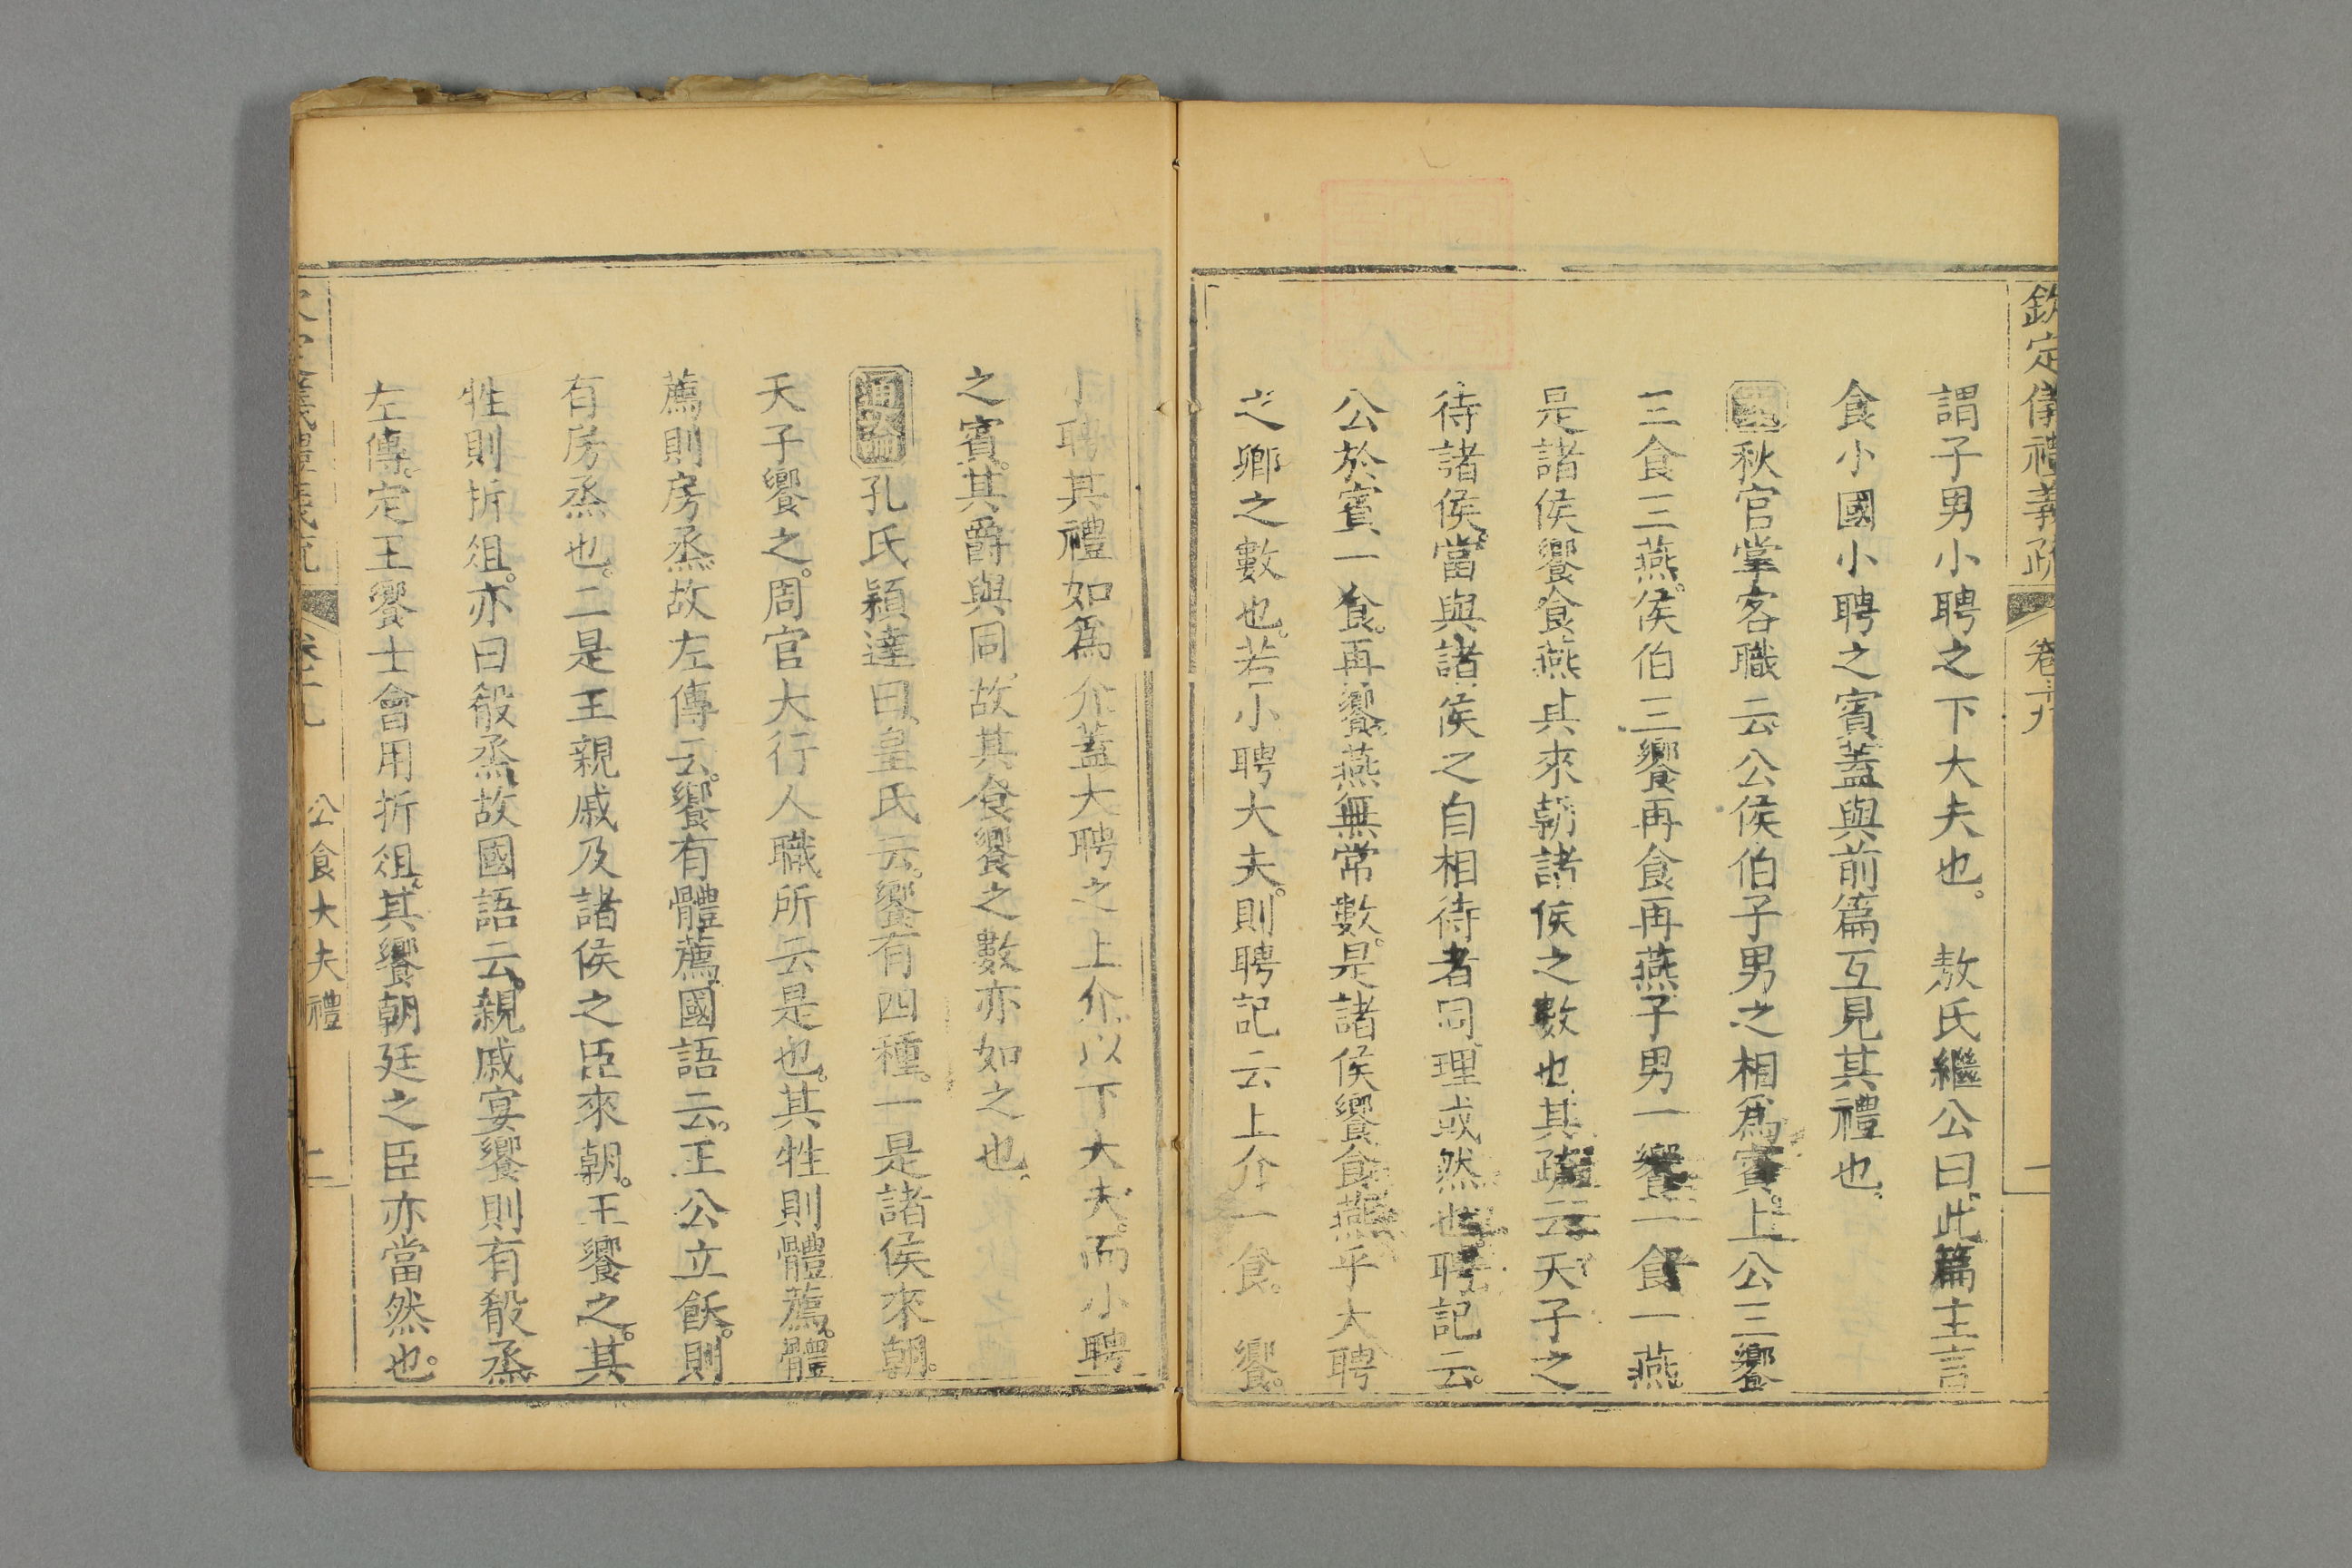 欽定儀禮義疏 卷十九 一
謂子男小聘之下大夫也。 敖氏繼公曰此篇主言
食小國小聘之賓蓋與前篇互見其禮也。
秋官掌客職云公侯伯子男之相爲賓。上公三饗
三食三燕。侯伯三饗再食再燕子男一饗一食一燕。
是諸侯饗食燕其來朝諸侯之數也。其疏云天子之
待諸侯。當與諸侯之自相待者同。理或然也。聘記云。
公於賓一食。再饗。燕無常數。是諸侯饗食燕乎大聘
之卿之數也。若小聘大夫。則聘記云上介一食。 饗。
小聘其禮如爲介蓋大聘之上介以下大夫。而小聘
之賓。其爵與同。故其食饗之數亦如之也。
通論孔氏穎達曰。皇氏云。饗有四種。一是諸侯來朝。
天子饗之。周官大行人職。所云是也。其牲則體薦。體
薦則房烝故左傳云。饗有體薦。國語云。王公立飫。則
有房烝也。二是王親戚及諸侯之臣來朝。王饗之。其
牲則折俎。亦曰殽烝。故國語云。親戚宴饗則有殽烝。
左傳。定王饗士會用折俎。其饗朝廷之臣亦當然也。
公食大夫禮 二